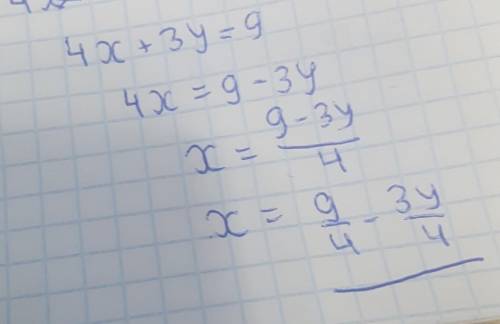 4x + 3y = 9
4x = 9 - 3y
x = (9 - 3y)/4
x = 9/4 - 3y/4